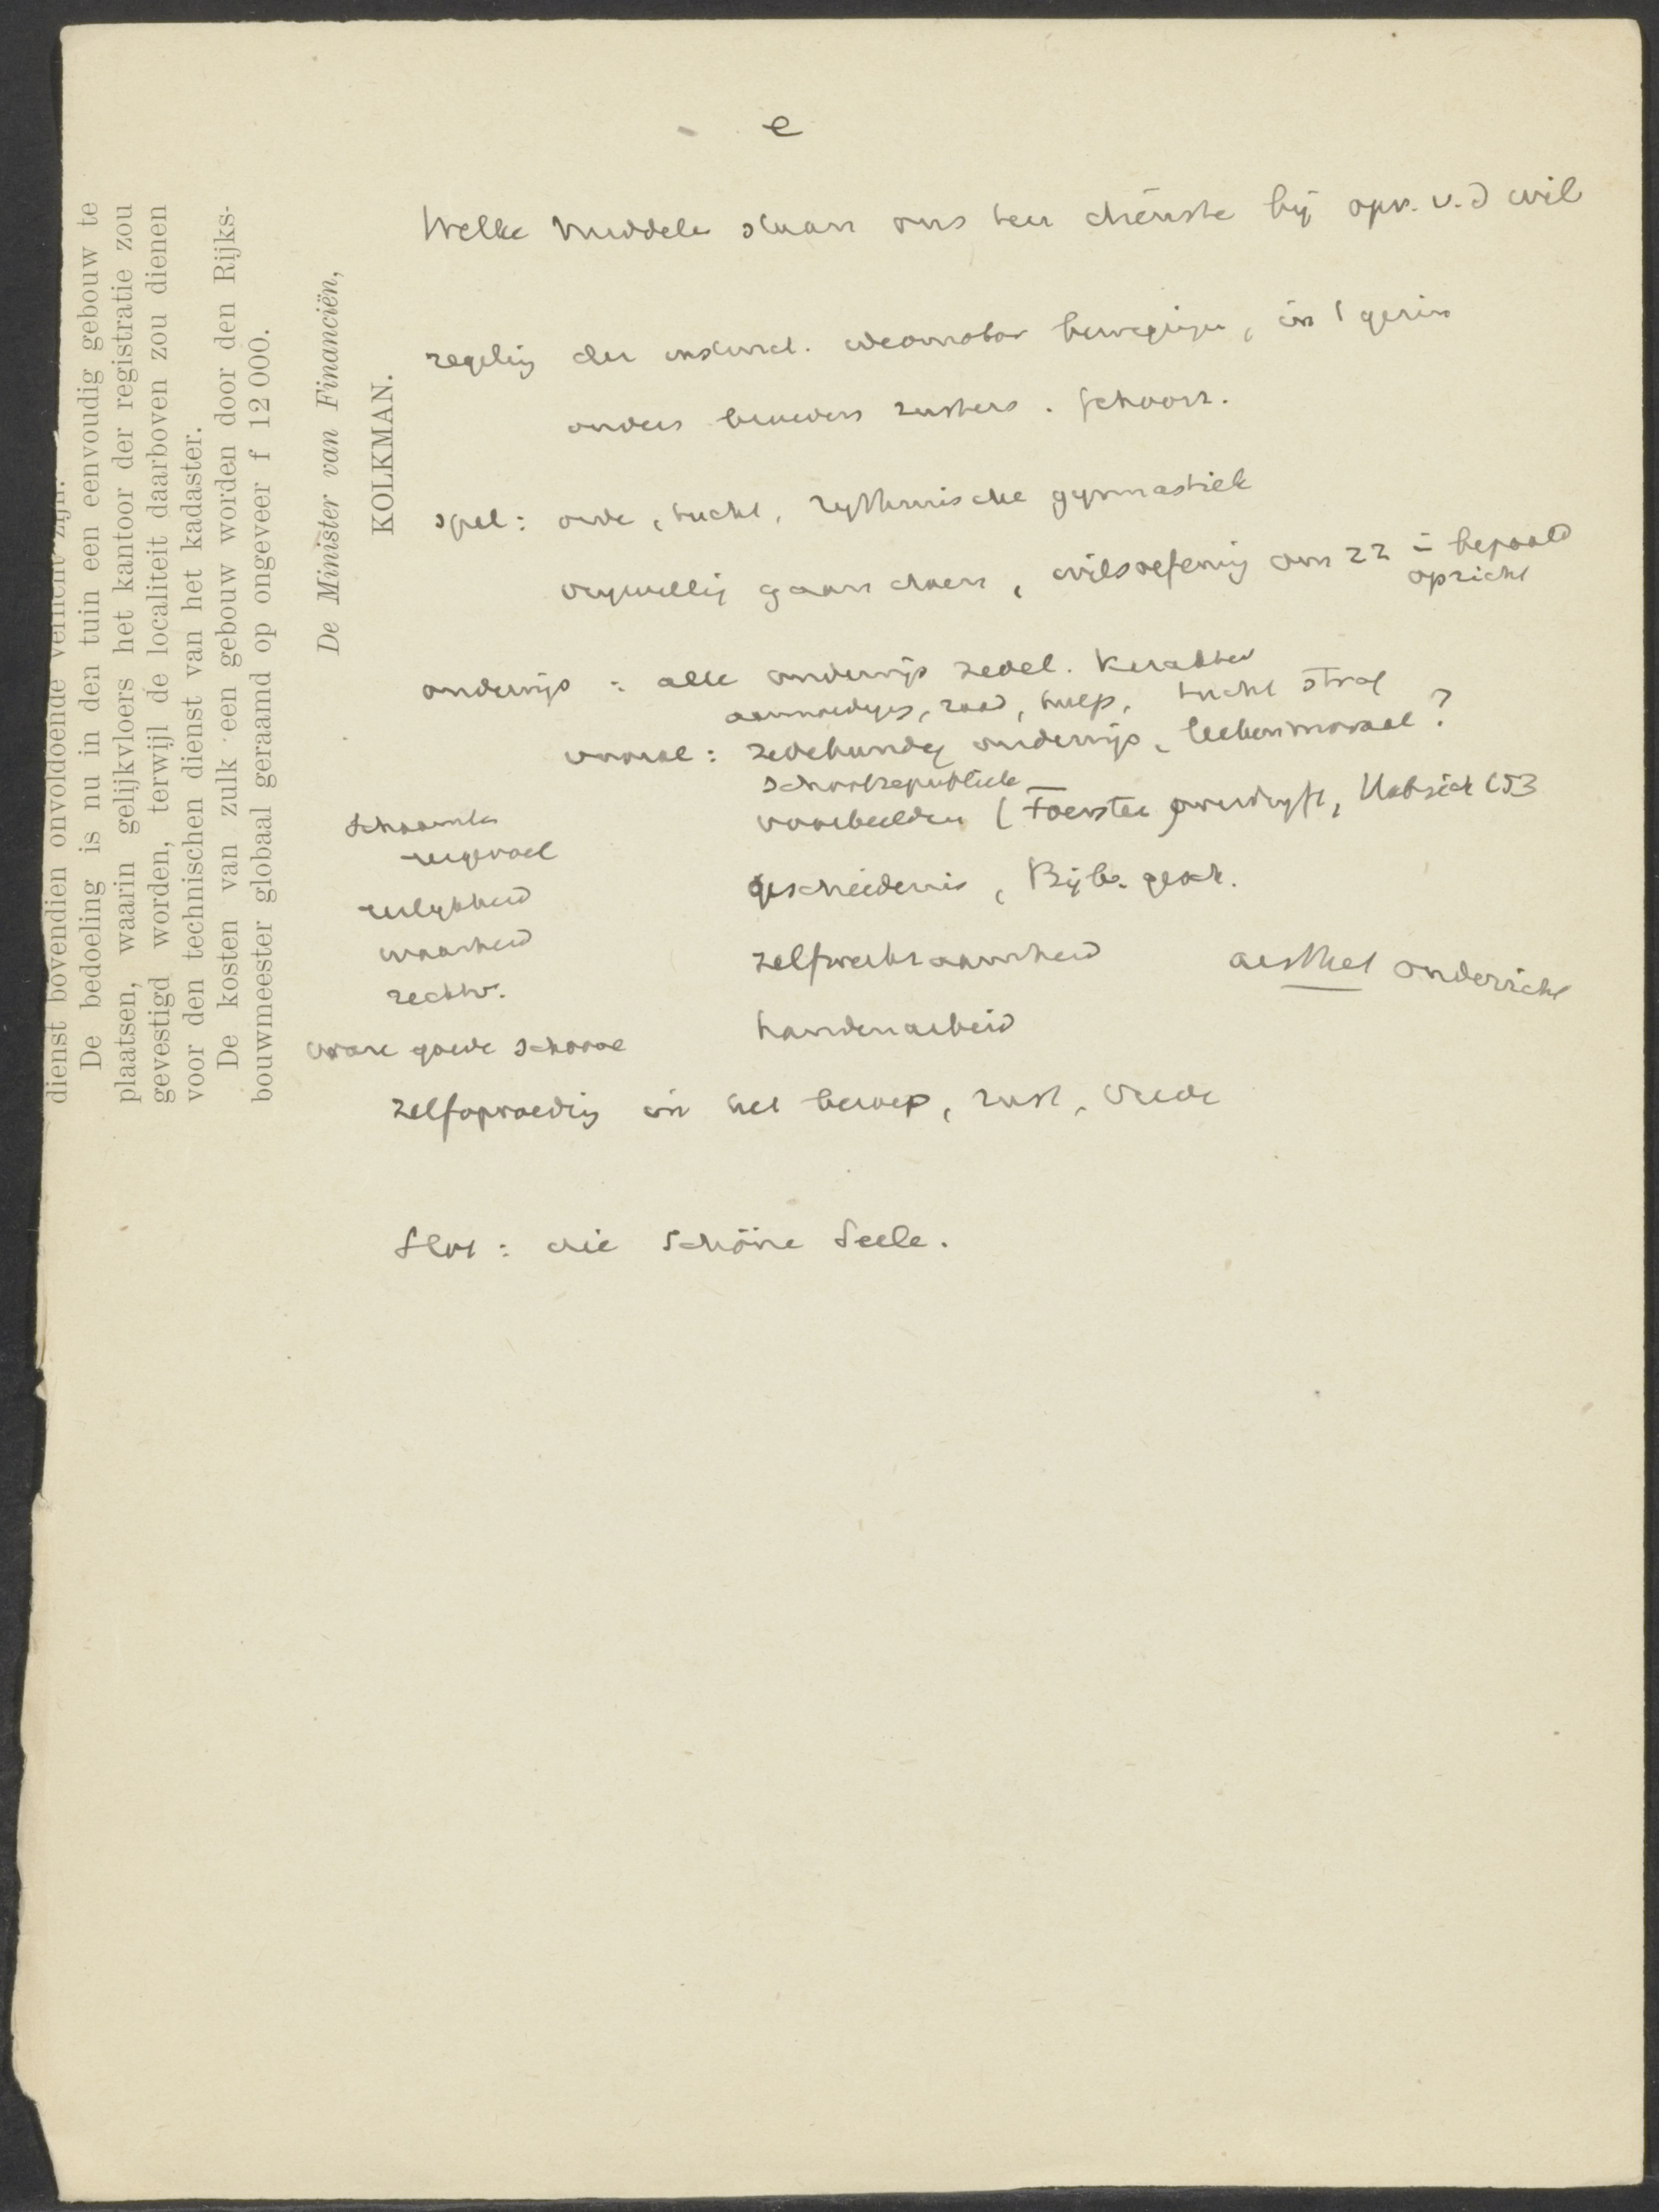 dienst bovendien onvoldoende verlicht zijn.
De bedoeling is nu in den tuin een eenvoudig gebouw te
plaatsen, waarin gelijkvloers het kantoor der registratie zou
gevestigd worden, terwijl de localiteit daarboven zou dienen
voor den technischen dienst van het kadaster.
De kosten van zulk een gebouw worden door den Rijks-
bouwmeester globaal geraamd op ongeveer f 12 000.
De Minister van Financiën,
KOLKMAN.
e
Welke middele staan ons ten dienste bij opv. v. d wil
regelig der instinct. bewegingen, in 't gezin
ouders broeders zusters. schoorz.
spel: orde, tucht, rythmische gymnastiek
vrijwillig gaan doen, wilsoefening om zz in bepaald
opzicht
onderwijs = alle onderwijs zedel. karakter
raad, hulp, tucht straf
vooral: zedekundig onderwijs, leekenmoraal?
schoolrepubliek
voorbeelden (Foerster 153
schaamte
eergevoel
eerlijkheid
waarheid
rechtv.
ware goede schoone
geschiedenis, Bijb. gesch.
zelfwerkzaamheid aesthet onderricht
handenarbeid
zelfopvoedig in het beroep, rust, vrede
Slot: die schöne Seele.